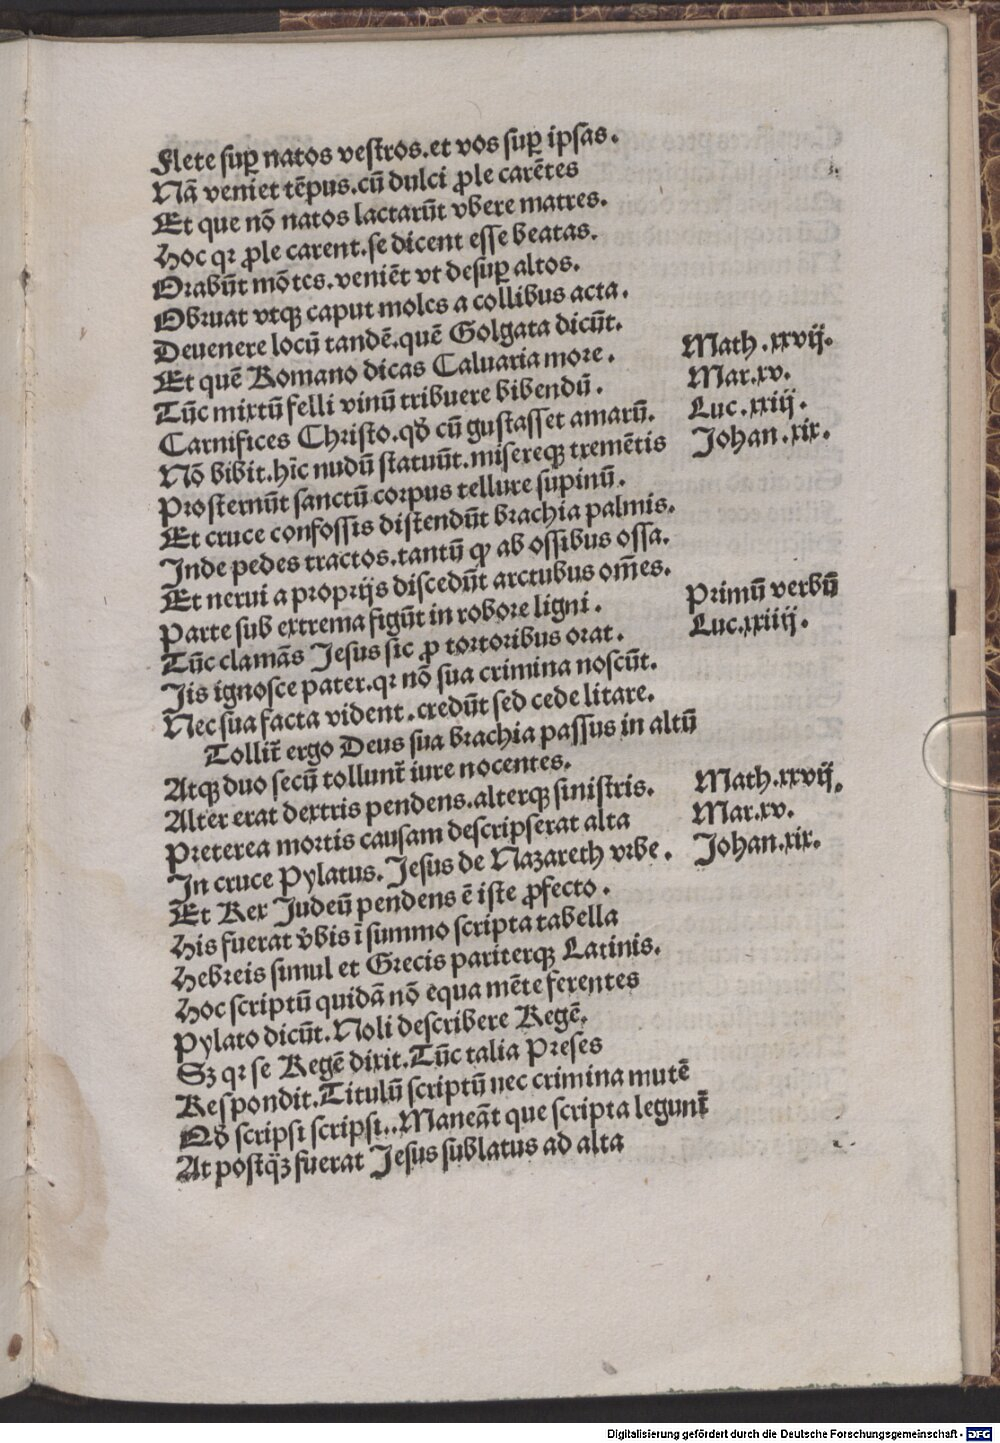 Flete suꝑ natos vestros.et vos suꝑ ipsas.
Nā veniet tēpus.cū dulci ꝓle carētes
Et que nō natos lactarūt vbere matres.
Hoc qꝛ ꝓle carent.se dicent esse beatas.
Orabūt mōtes.veniēt vt desuꝑ altos.
Obruat vtqꝫ caput moles a collibus acta.
Deuenere locū tandē.quē Golgata dicūt.
Et quē Romano dicas Caluaria more.
Tūc mixtū felli vinū tribuere bibendū.
Carnifices Christo.qð cū gustasset amarū.
Nō bibit.hīc nudū statuūt.misereqꝫ tremētis
Prosternūt sanctū corpus tellure supinū.
Et cruce confossis distendūt brachia palmis.
Inde pedes tractos.tantū ꝙ ab ossibus ossa.
Et nerui a proprijs discedūt arctubus om̄es.
Parte sub extrema figūt in robore ligni.
Tūc clamās Jesus sic ꝓ tortoribus orat.
Jis ignosce pater.qꝛ nō sua crimina noscūt.
Nec sua facta vident.credūt sed cede litare.
Tollit̄ ergo Deus sua brachia passus in altū
Atqꝫ duo secū tollunt̄ iure nocentes.
Alter erat dextris pendens.alterqꝫ sinistris.
Preterea mortis causam descripserat alta
In cruce Pylatus. Jesus de Nazareth vrbe.
Et Rex Judeū pendens ē iste ꝓfecto.
His fuerat v̓bis ī summo scripta tabella
Hebreis simul et Grecis pariterqꝫ Latinis.
Hoc scriptū quidā nō equa mēte ferentes
Pylato dicūt.Noli describere Regē.
Sꝫ qꝛ se Regē dixit.Tūc talia Preses
Respondit.Titulū scriptū nec crimina mutē
Qð scripsi scripsi..Maneāt que scripta legunt̄
At postq̄ꝫ fuerat Jesus sublatus ad alta
Math.xxvij.
Mar.xv.
Luc.xxiij.
Johan.xix.
Primū verbū
Luc.xxiiij.
Math.xxvij.
Mar.xv.
Johan.xix.
Digitalisierung gefördert durch die Deutsche Forschungsgemeinschaft - DFG